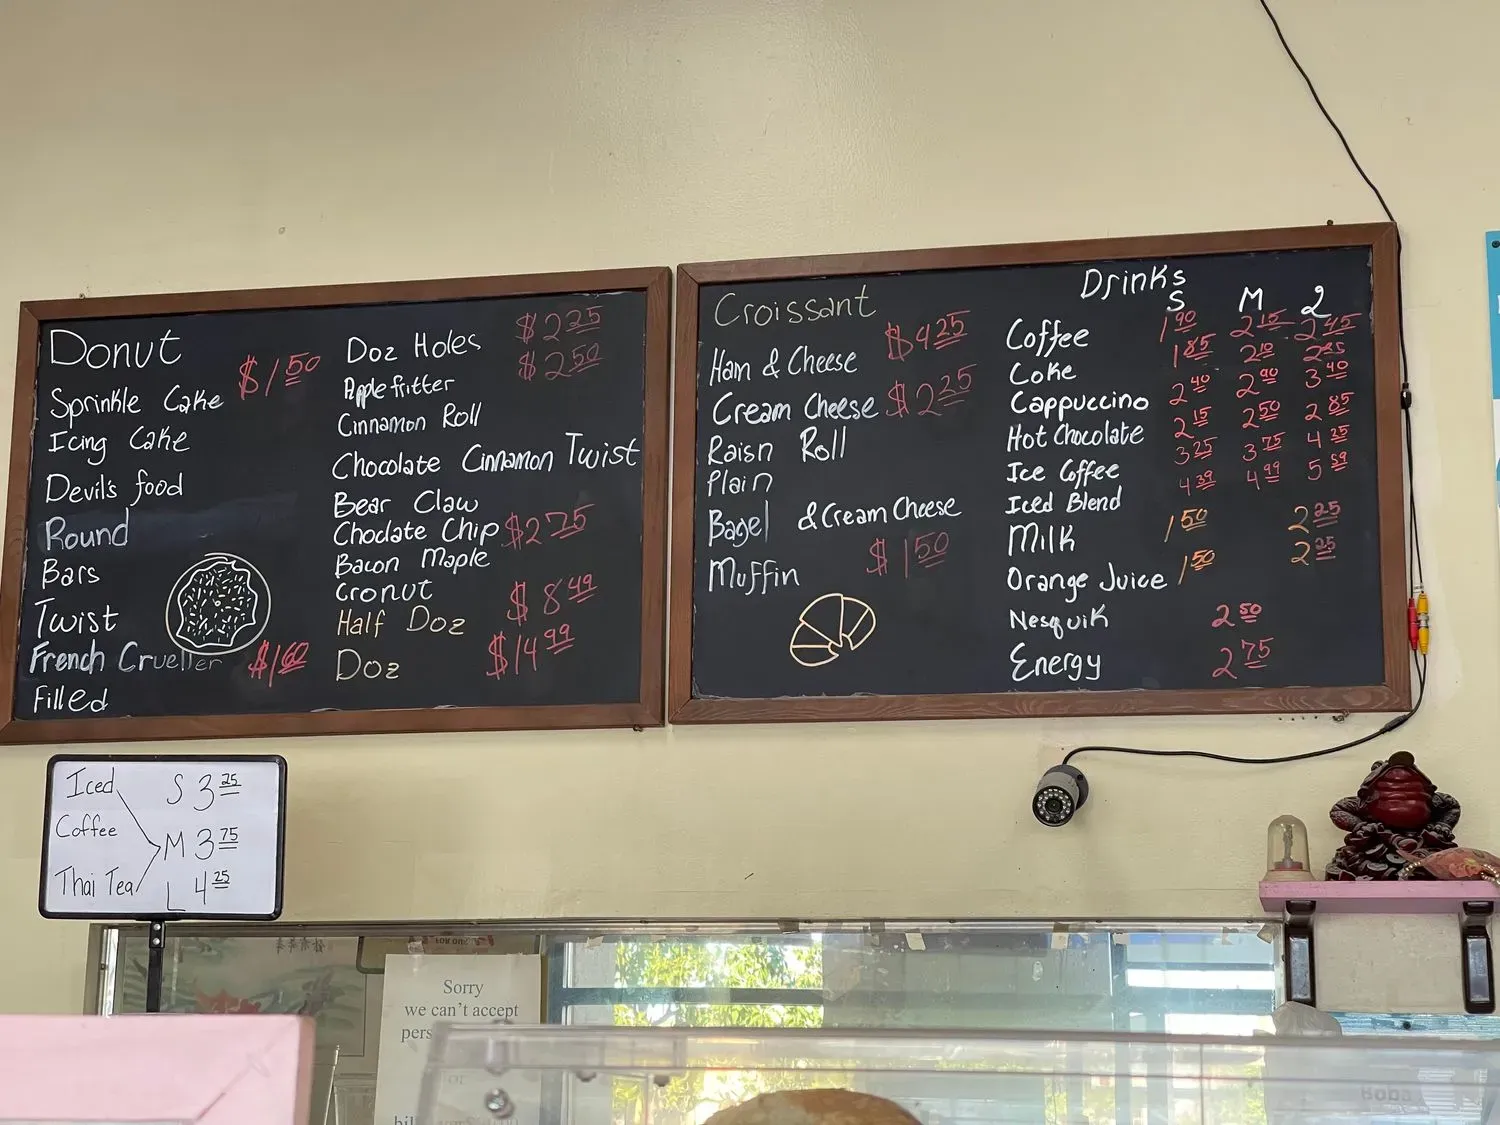 Donut
$1.50
Sprinkle Cake
Icing Cake
Devil's food
Round
Bars
Twist
French Crueller $1.60
Filled
Doz Holes $2.25
Apple fritter $2.50
Cinnamon Roll
Chocolate Cinnamon Twist
Bear Claw
Choclate Chip $2.75
Bacon Maple
Cronut
Half Doz $8.49
Doz $14.99
Croissant
Ham & Cheese $4.25
Cream Cheese $2.25
Raisn Roll
Plain
Bagel & Cream Cheese
Muffin $1.50
Drinks
S M 2
Coffee 1.90 2.15 2.45
Coke 1.85 2.10
Cappuccino 2.40 2.90 3.40
Hot Chocolate 2.15 2.50 2.85
Ice Coffee 3.25 3.75 4.25
Iced Blend 4.39 4.99 5.59
Milk 1.50 2.25
Orange Juice 1.50 2.25
Nesquik 2.50
Energy 2.75
Iced S 3.25
Coffee M 3.75
Thai Tea L 4.25
Sorry
we can't accept